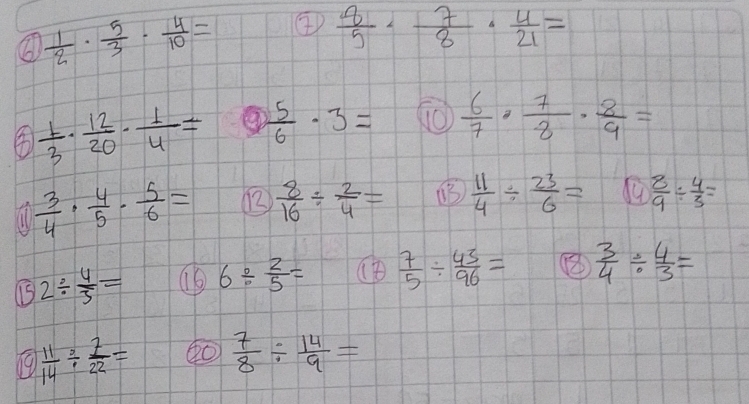 ⑥ 1/2 · 5/3 · 4/10 = ⑦ 8/5 · 7/8 · 4/21 =
⑧ 1/3 · 12/20 · 1/4 = ⑨ 5/6 · 3 = ⑩ 6/7 · 7/8 · 8/9 =
⑪ 3/4 · 4/5 · 5/6 = ⑫ 8/16 ÷ 2/4 = ⑬ 11/4 ÷ 23/6 = ⑭ 8/9 ÷ 4/3 =
⑮ 2 ÷ 4/3 = ⑯ 6 ÷ 2/5 = ⑰ 7/5 ÷ 43/96 = ⑱ 3/4 ÷ 4/3 =
⑲ 11/14 ÷ 7/22 = ⑳ 7/8 ÷ 14/9 =